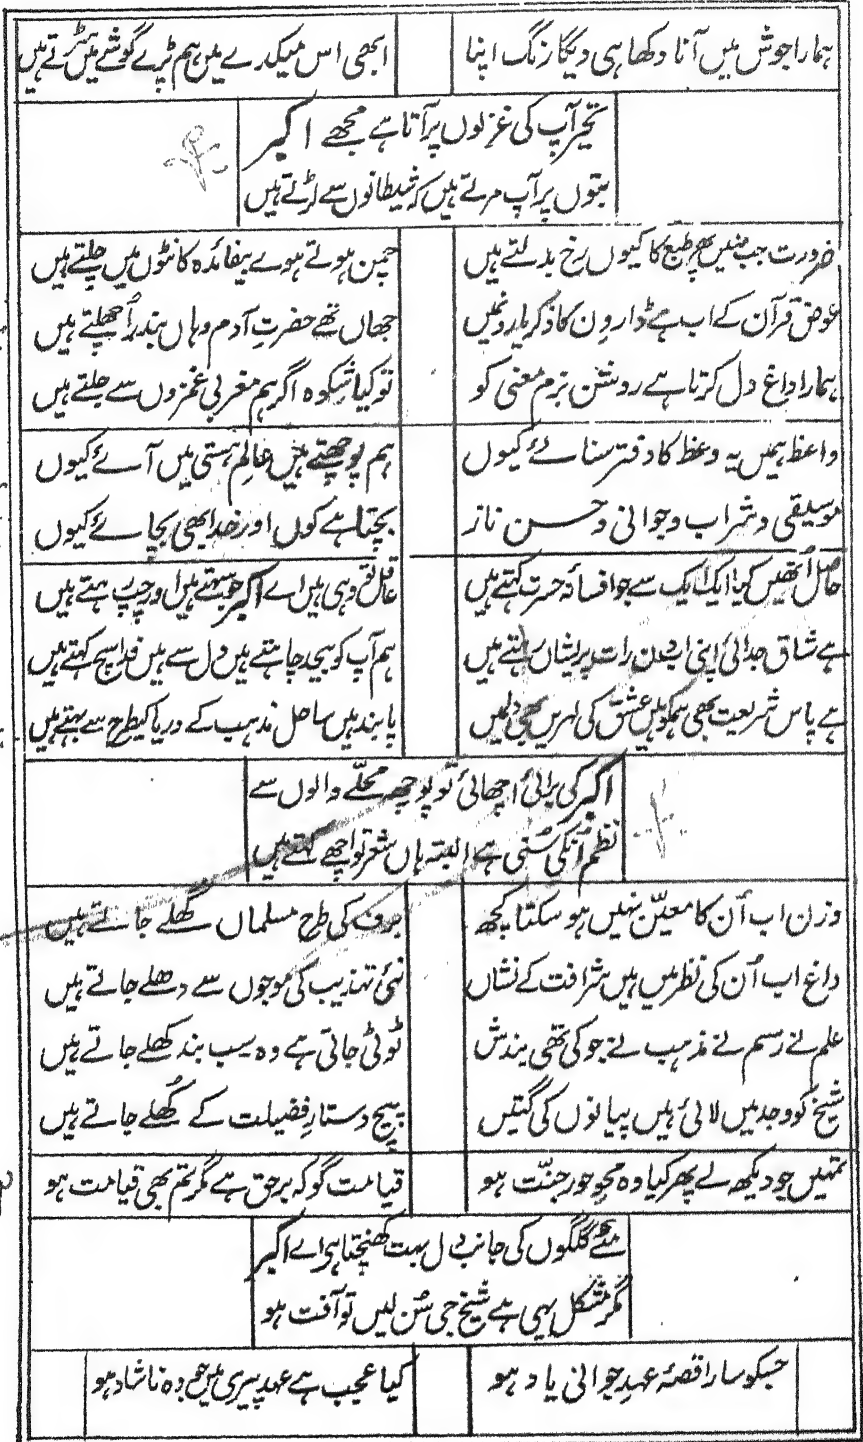 ہمارا جوش میں آنا دکھا ہی دیگا رنگ اپنا ابھی اس میکدے میں ہم پڑے گوشے میں سڑتے ہیں
تحیر آپ کی غزلوں پر آتا ہے مجھے اکبر
بتوں پر آپ مرتے ہیں کہ شیطانوں سے لڑتے ہیں
ضرورت جب نہیں پھر طبع کا کیوں رخ بدلتے ہیں چمن ہوتے ہوے بیفائدہ کانٹوں میں چلتے ہیں
عوض قرآن کے اب ہے ڈارون کا ذکر یاروں میں جہاں تھے حضرتِ آدم وہاں بندر اُچھلتے ہیں
ہمارا داغ دل کرتا ہے روشن بزم معنی کو تو کیا شکوہ اگر ہم مغربی غمزوں سے جلتے ہیں
واعظ ہمیں یہ وعظ کا دفتر سنائے کیوں ہم پوچھتے ہیں عالمِ ہستی میں آئے کیوں
موسیقی و شراب و جوانی و حسن ناز بچتا ہے کون اور خدا بھی بچائے کیوں
حاصل اُنھیں کیا ایک ایک سے جو افسانۂ حسرت کہتے ہیں عاقل تو وہی ہیں اے اکبر جو سہتے ہیں اور چپ رہتے ہیں
ہے شاق جدائی اپنی اب دن رات پریشاں رہتے ہیں ہم آپ کو بیحد چاہتے ہیں دل سے ہیں فدا سچ کہتے ہیں
ہے پاس شریعت بھی ہمکو ہیں عشق کی لہریں بھی دلمیں پابند ہیں ساحل مذہب کے دریا کیطرح سے بہتے ہیں
اکبر کی برائی اچھائی تو پوچھ محلّے والوں سے
نظم اُنکی سُنی ہے البتہ ہاں شعر تو اچھے کہتے ہیں
وزن اب اُن کا معیّن نہیں ہو سکتا کچھ برف کی طرح مسلماں گھلے جاتے ہیں
داغ اب اُن کی نظر میں ہیں شرافت کے نشاں نئی تہذیب کی موجوں سے دھلے جاتے ہیں
علم نے رسم نے مذہب نے جو کی تھی بندش ٹوٹی جاتی ہے وہ سب بند کھلے جاتے ہیں
شیخ کو وجد میں لائی ہیں پیانوں کی گتیں پیچ دستارِ فضیلت کے کُھلے جاتے ہیں
تمہیں جو دیکھ لے پھر کیا وہ محوِ حورِ جنّت ہو قیامت گو کہ برحق ہے مگر تم بھی قیامت ہو
مئے گلگوں کی جانب دل بہت کھنچتا ہی اے اکبر
مگر مشکل یہی ہے شیخ جی سُن لیں تو آفت ہو
جسکو سارا قصۂ عہدِ جوانی یاد ہو کیا عجب ہے عہدِ پیری میں جو وہ ناشاد ہو